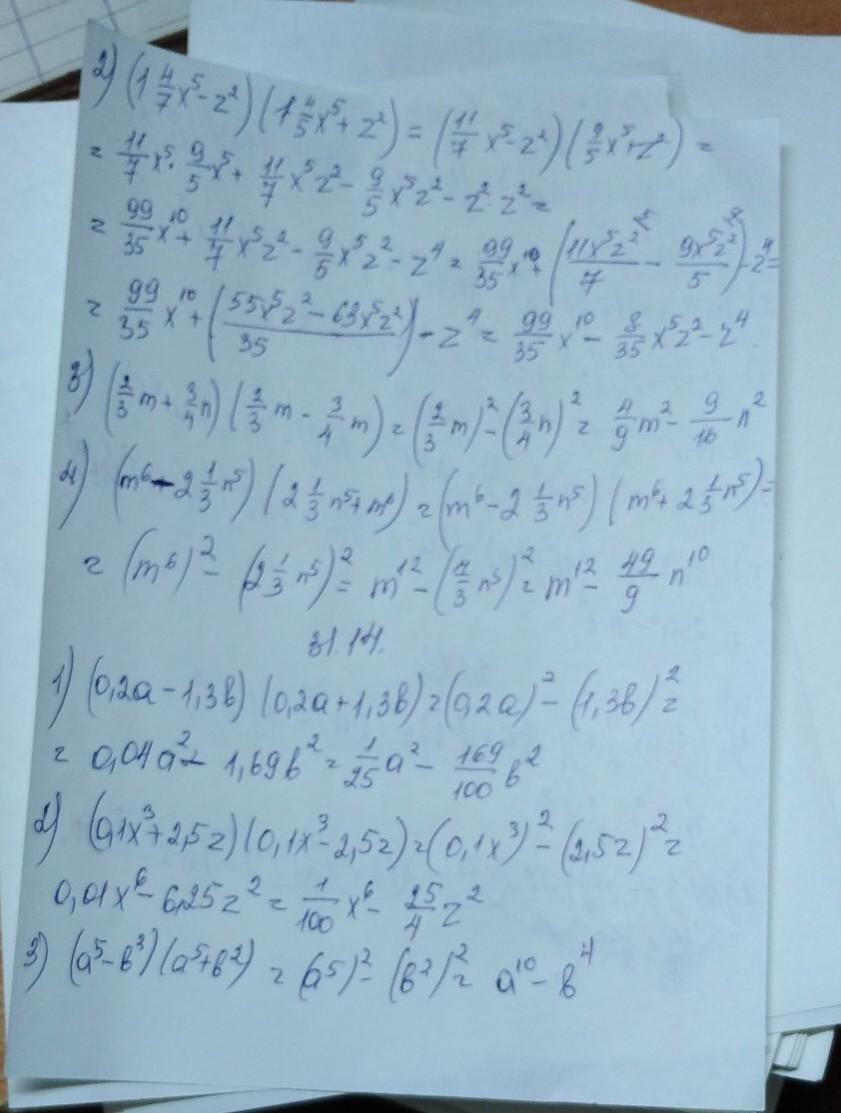 2) (1 4/7 x⁵ - z²) (1 4/5 x⁵ + z²) = (11/7 x⁵ - z²) (9/5 x⁵ + z²) =
= 11/7 x⁵ · 9/5 x⁵ + 11/7 x⁵z² - 9/5 x⁵z² - z² · z² =
= 99/35 x¹⁰ + 11/7 x⁵z² - 9/5 x⁵z² - z⁴ = 99/35 x¹⁰ + (11x⁵z²/7 - 9x⁵z²/5) - z⁴ =
= 99/35 x¹⁰ + (55x⁵z² - 63x⁵z²/35) - z⁴ = 99/35 x¹⁰ - 8/35 x⁵z² - z⁴.
3) (2/3 m + 3/4 n) (2/3 m - 3/4 m) = (2/3 m)² - (3/4 n)² = 4/9 m² - 9/16 n²
4) (m⁶ - 2 1/3 n⁵) (2 1/3 n⁵ + m⁶) = (m⁶ - 2 1/3 n⁵) (m⁶ + 2 1/3 n⁵) =
= (m⁶)² - (2 1/3 n⁵)² = m¹² - (7/3 n⁵)² = m¹² - 49/9 n¹⁰
31.14.
1) (0,2a - 1,3b) (0,2a + 1,3b) = (0,2a)² - (1,3b)² =
= 0,04a² - 1,69b² = 1/25 a² - 169/100 b²
2) (0,1x³ + 2,5z) (0,1x³ - 2,5z) = (0,1x³)² - (2,5z)² =
0,01x⁶ - 6,25z² = 1/100 x⁶ - 25/4 z²
3) (a⁵ - b³) (a⁵ + b²) = (a⁵)² - (b²)² = a¹⁰ - b⁴